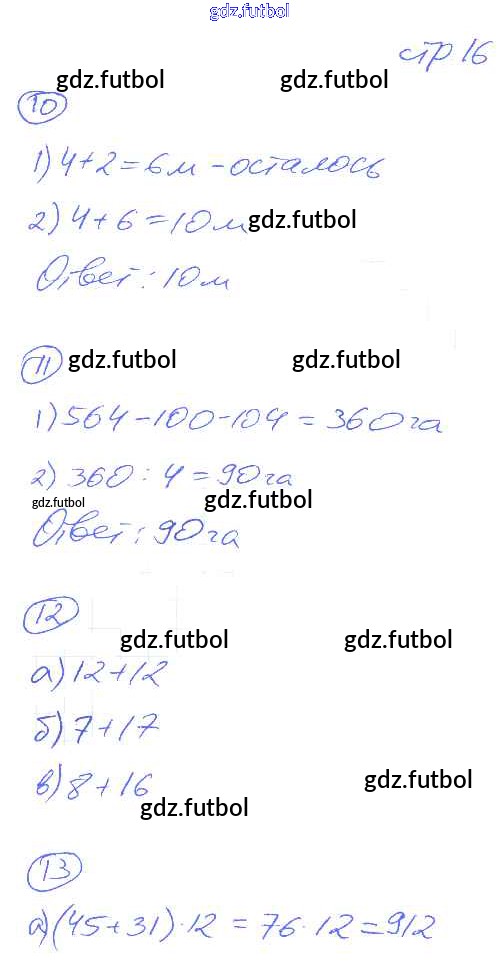 gdz.futbol
стр 16
gdz.futbol gdz.futbol
10
1) 4+2=6м - осталось
2) 4+6=10м gdz.futbol
Ответ: 10м
11 gdz.futbol gdz.futbol
1) 564-100-104=360га
2) 360:4=90га
gdz.futbol gdz.futbol
Ответ: 90га
12
gdz.futbol gdz.futbol
а) 12+12
б) 7+17
в) 8+16
gdz.futbol
gdz.futbol
13
а) (45+31)·12=76·12=912